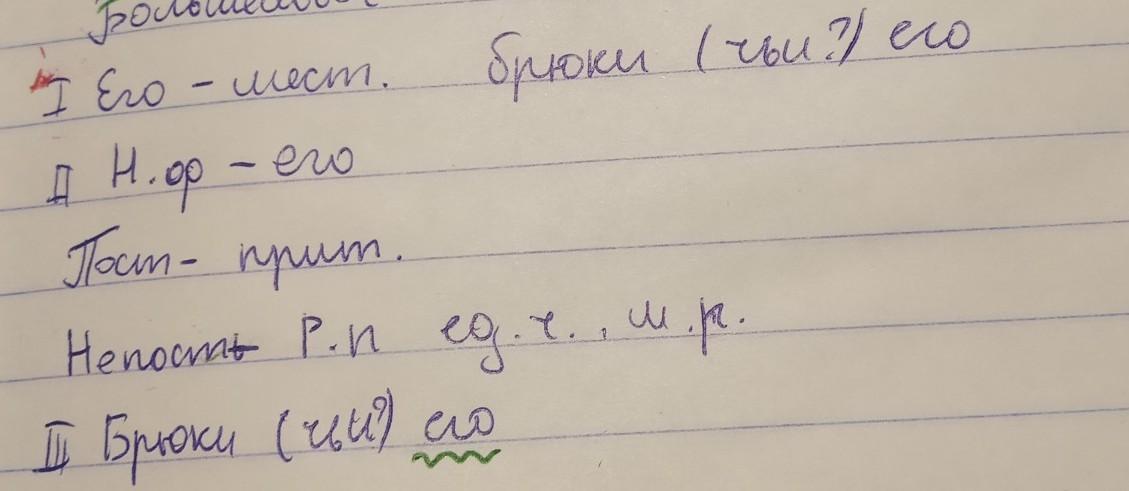 I Его - мест. брюки (чьи?) его
II Н.ф - его
Пост - прит.
Непост Р.п ед.ч., м.р.
III Брюки (чьи?) его